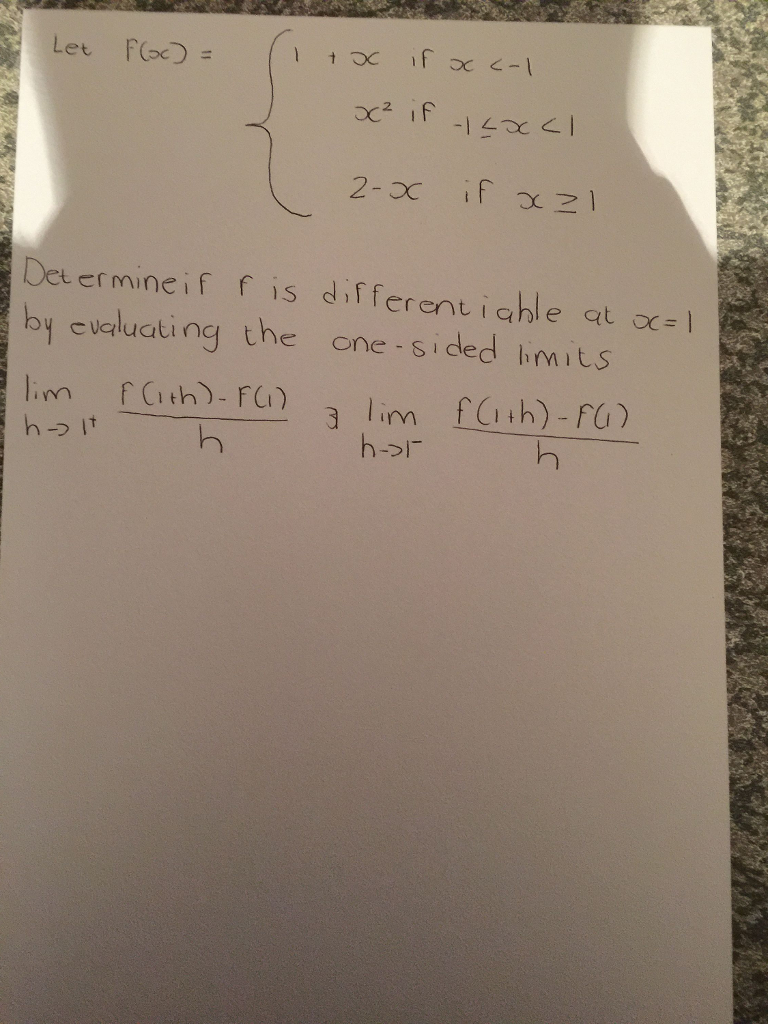 Let f(x) = { 1 + x if x < -1
x² if -1 ≤ x < 1
2 - x if x ≥ 1
Determine if f is differentiable at x = 1
by evaluating the one-sided limits
lim h→1⁺ f(1+h) - f(1) / h & lim h→1⁻ f(1+h) - f(1) / h